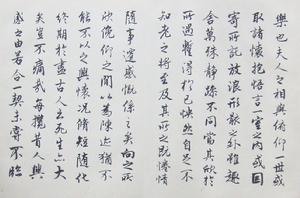 樂也夫人之相與俯仰一世或
取諸懷抱悟言一室之內或因
寄所託放浪形骸之外雖趣
舍萬殊靜躁不同當其欣於
所遇暫得於己怏然自足不
知老之將至及其所之既惓情
隨事遷感慨係之矣向之所
欣俛仰之閒以為陳迹猶不
能不以之興懷況脩短隨化
終期於盡古人云死生亦大
矣豈不痛哉每攬昔人興
感之由若合一契未嘗不臨